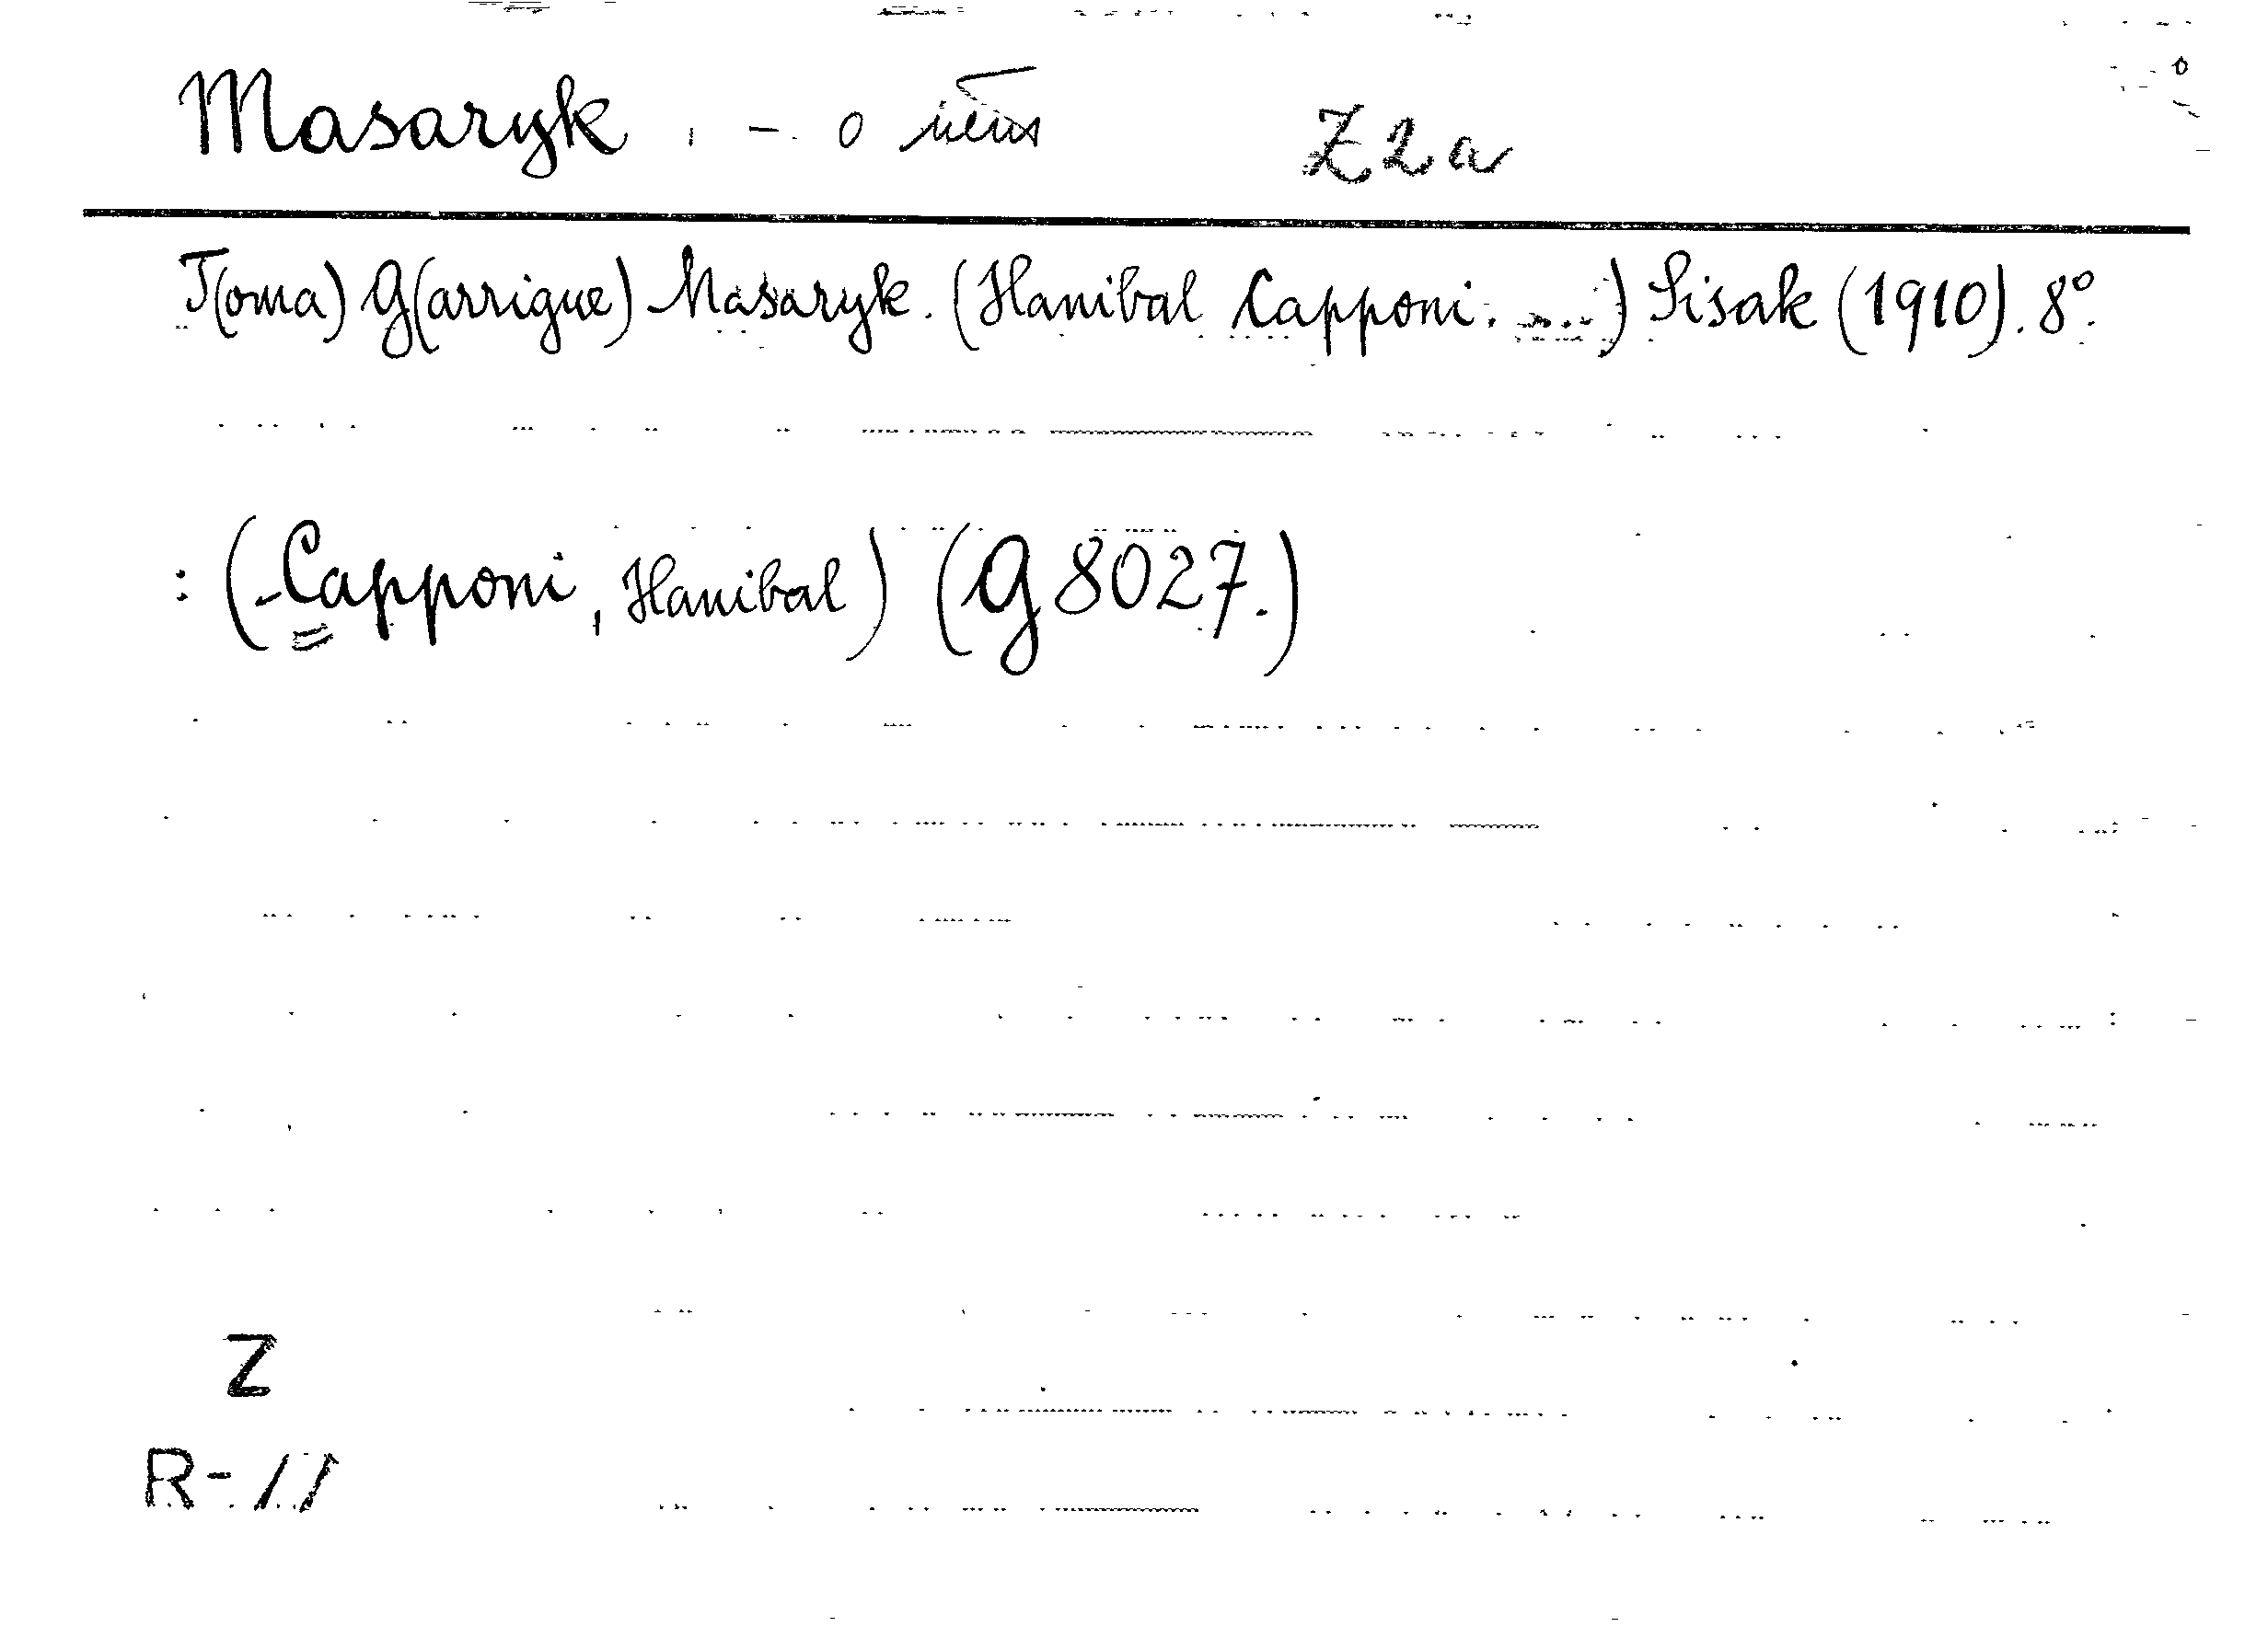 Masaryk, - o něm Z2a
T(oma) G(arrigue) Masaryk. (Hanibal Capponi. ....) Sisak (1910). 8°.
: (-Capponi, Hanibal) (G 8027.)
Z
R-11